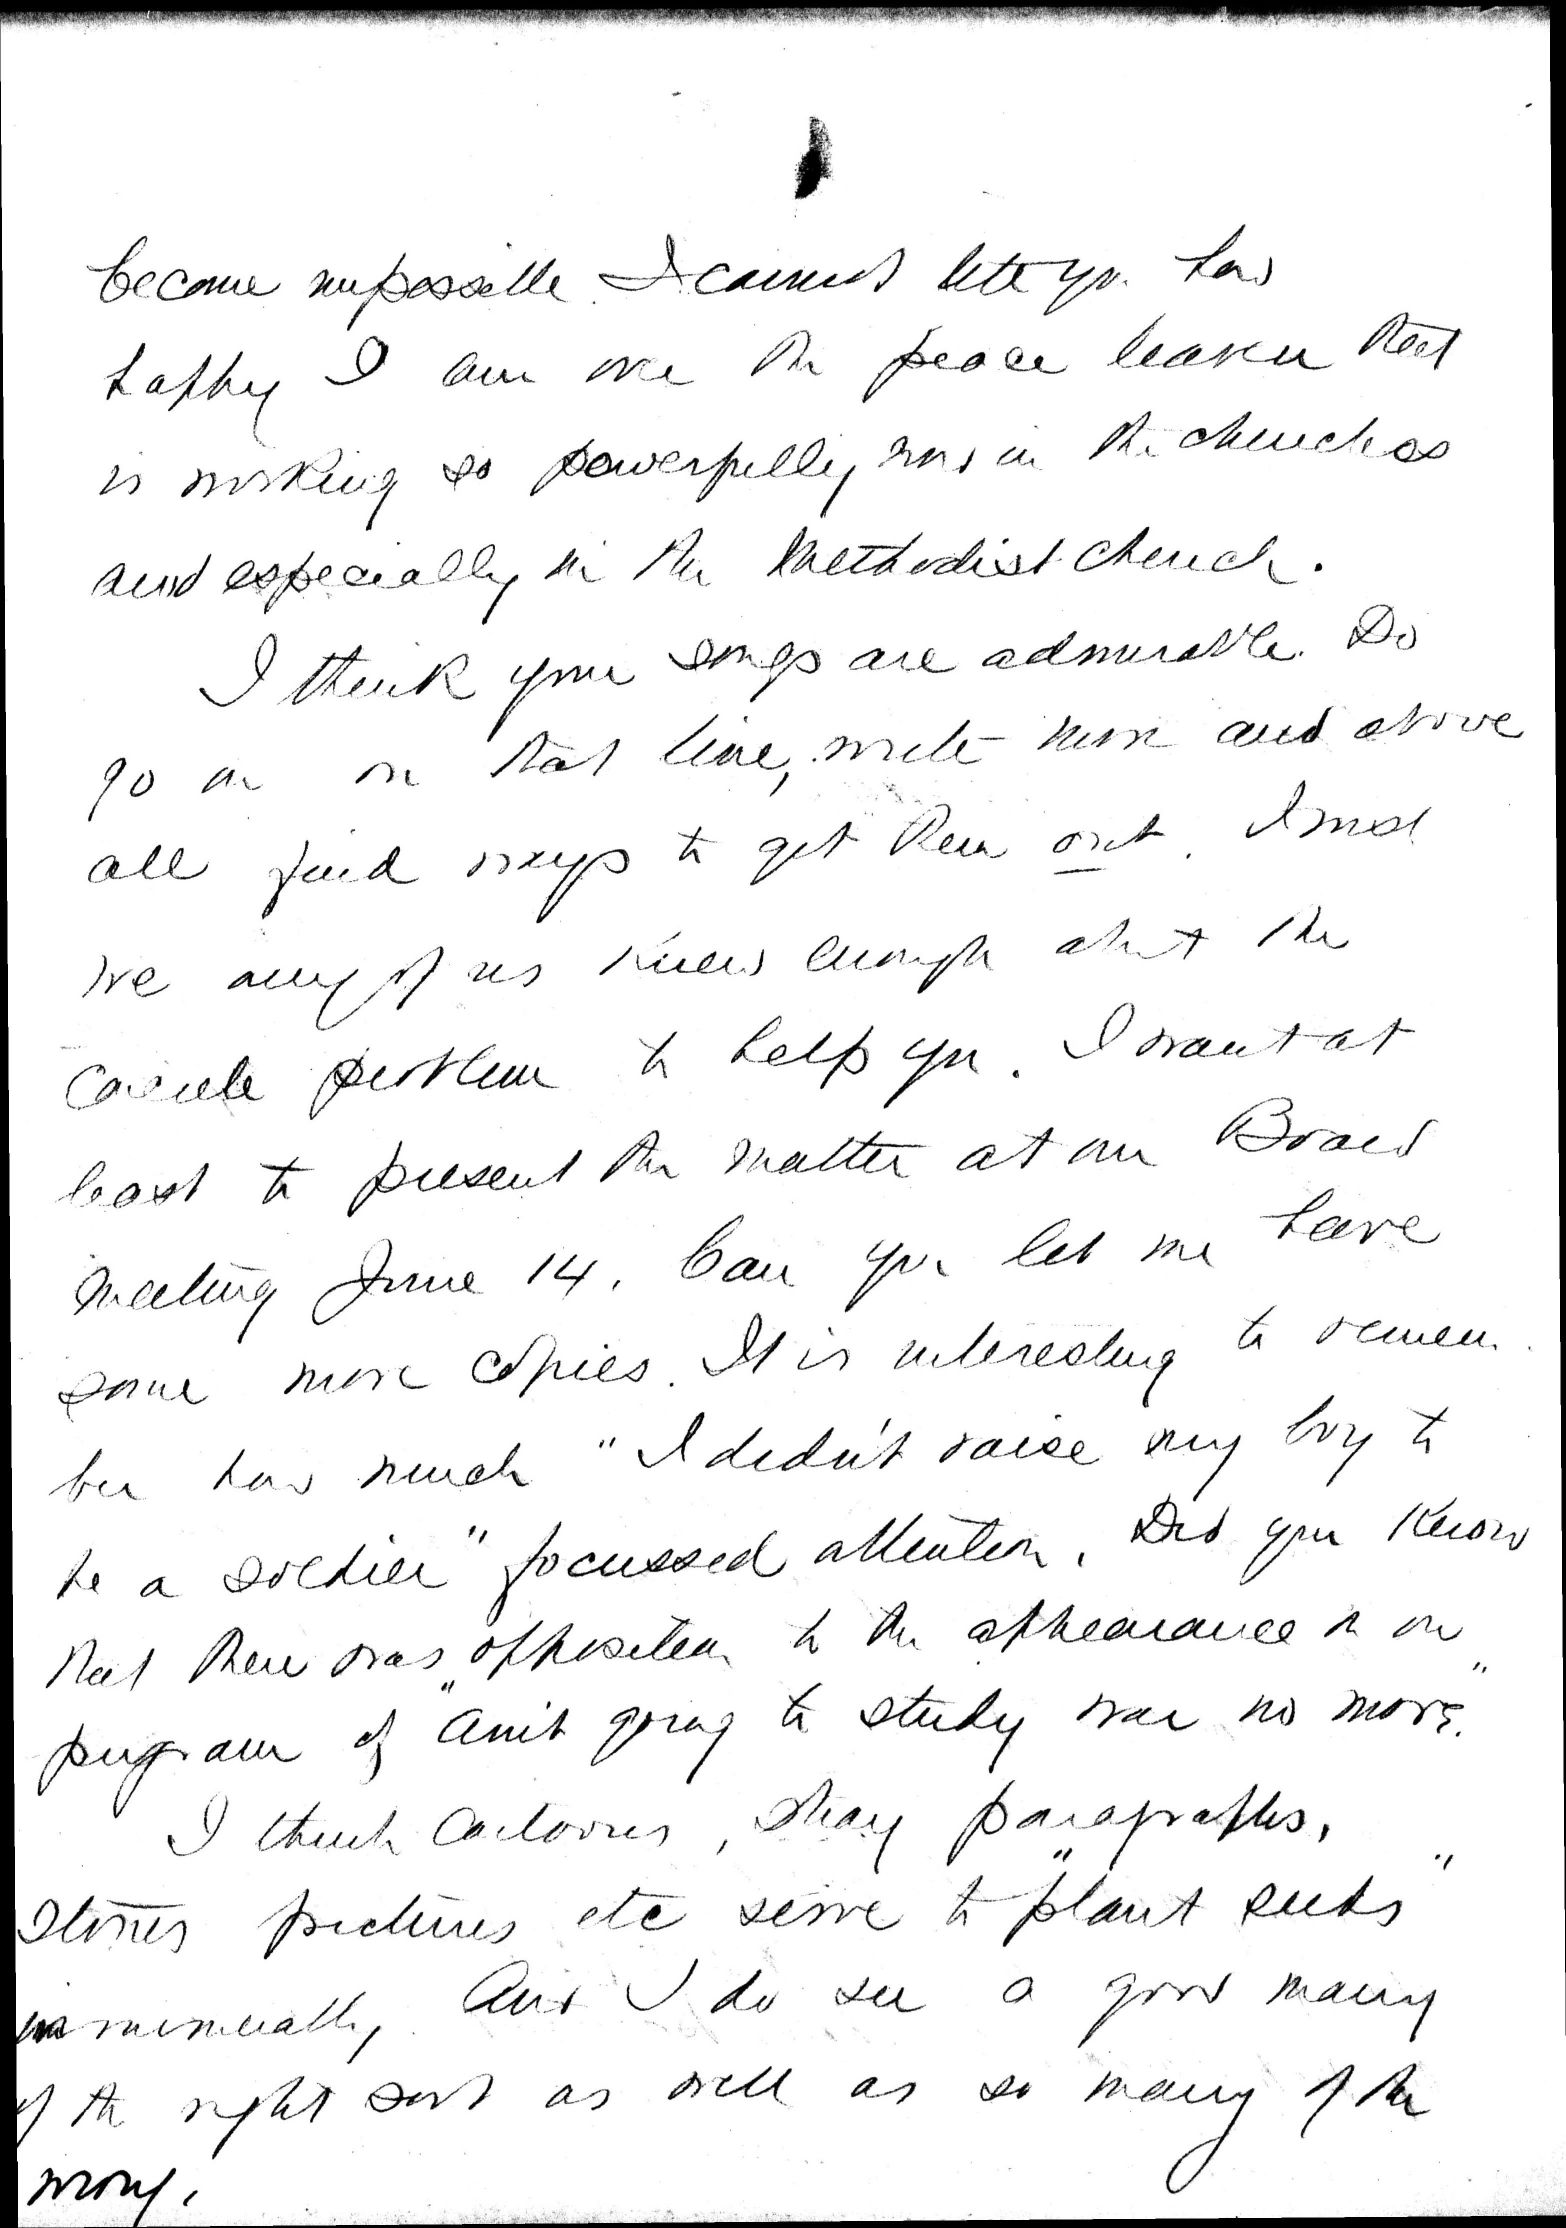 become impossible. I cannot tell you how
happy I am over the peace leaven that
is working so powerfully now in the churches
and especially in the Methodist church.
I think your songs are admirable. Do
go on on that line, write more and above
all find ways to get them out. I wish
we any of us knew enough about the
problem to help you. I want at
least to present the matter at our Board
meeting June 14. Can you let me have
some more copies. It is interesting to remem
ber how much "I didn't raise my boy to
be a soldier" focussed attention. Did you know
that there was opposition to the appearance on our
program of "Ain't going to study war no more."
I think cartoons, stray paragraphs,
stories pictures etc serve to "plant seeds"
innumerably. And I do see a good many
of the right sort as well as so many of the
wrong.